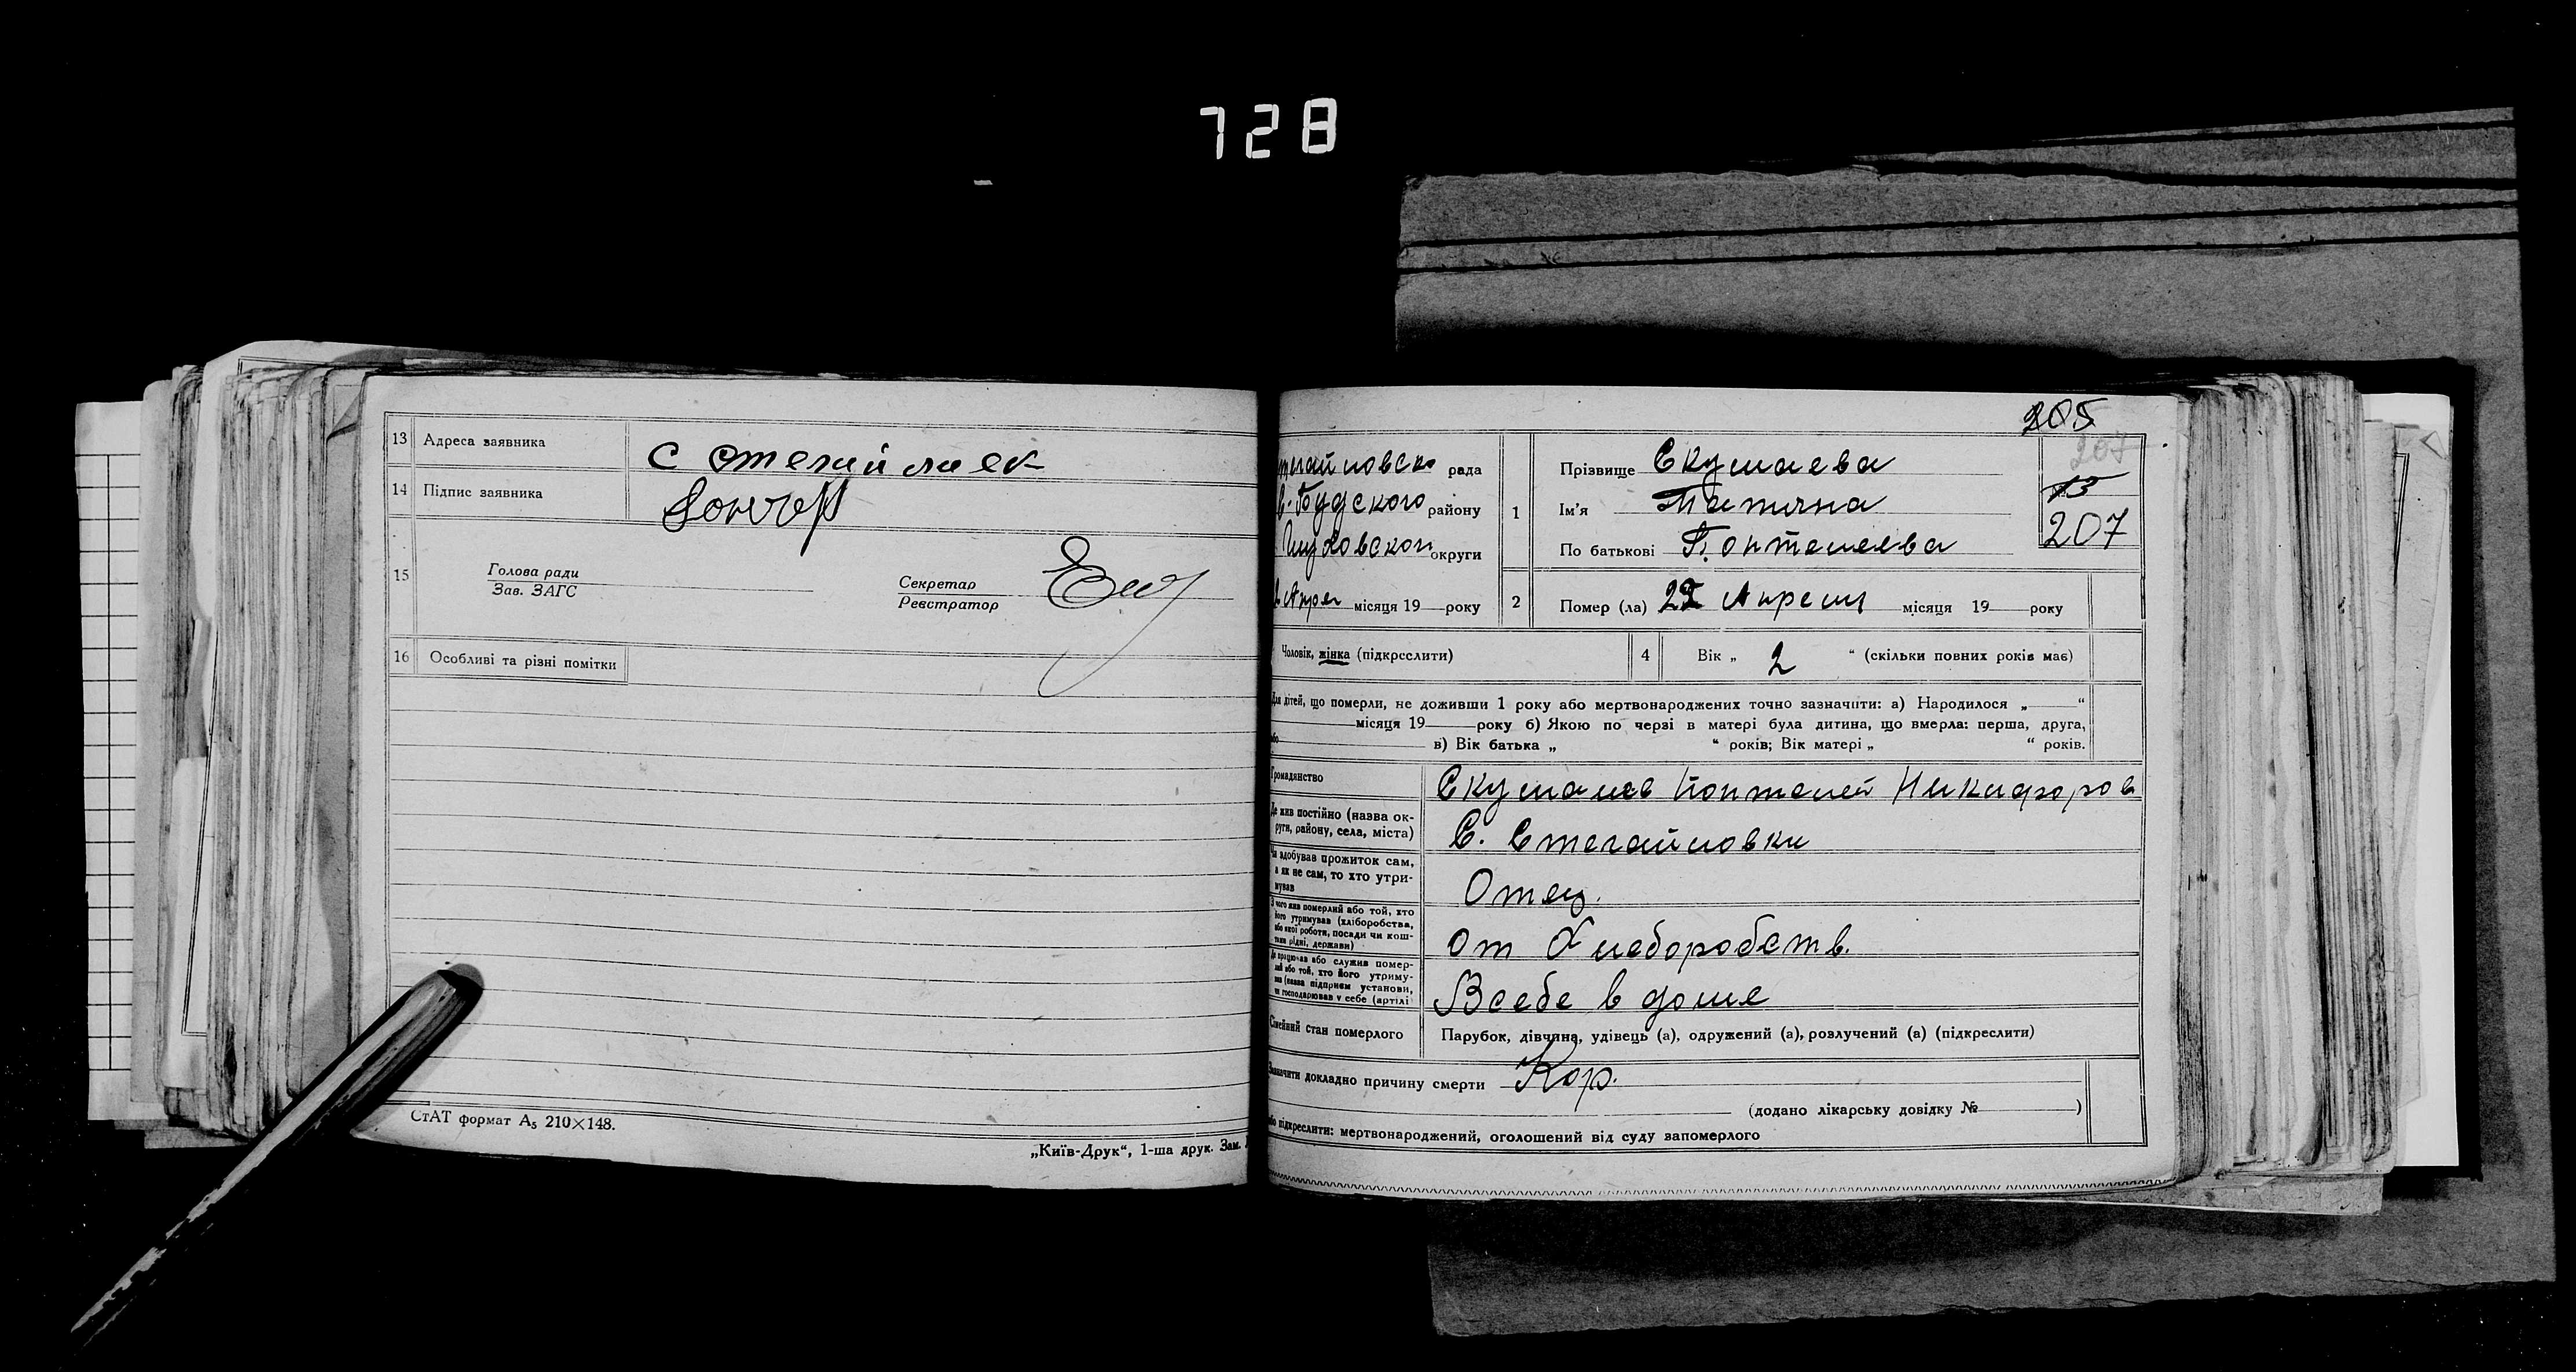 728
13 Адреса заявника с стегайлвек
14 Підпис заявника
15 Голова ради
Зав. ЗАГС
Секретар
Реєстратор
16 Особливі та різні помітки
СтАТ формат А5 210×148.
„Київ-Друк“, 1-ша друк. Зам.
205
207
13
207
тегайловско рада
в. Будского району
округи
Апрел місяця 19 року
1 Прізвище Скумаева
Ім'я Татияна
По батькові Понтелеева
2 Помер (ла) 22 Апреля місяця 19 року
Чоловік, жінка (підкреслити)
4 Вік „ 2 “ (скільки повних років має)
Для дітей, що померли, не доживши 1 року або мертвонароджених точно зазначити: а) Народилося „ “
місяця 19 року б) Якою по черзі в матері була дитина, що вмерла: перша, друга,
або в) Вік батька „ “ років; Вік матері „ “ років.
Громадянство Понтелей Никифоров
Де жив постійно (назва ок-
руги, району, села, міста) С. Стегайловки
Чи здобував прожиток сам,
а як не сам, то хто утри-
мував Отец.
З чого жив померлий або той, хто
його утримував (хліборобства,
або якої роботи, посади чи кош-
тами рідні, держави) от Хлеборобств.
Де працював або служив помер-
лий або той, хто його утриму-
вав (назва підприєм установи,
чи господарював у себе (артілі Всебе в доме
Сімейний стан померлого Парубок, дівчина, удівець (а), одружений (а), розлучений (а) (підкреслити)
Зазначити докладно причину смерти Кор.
(додано лікарську довідку № )
або підкреслити: мертвонароджений, оголошений від суду запомерлого